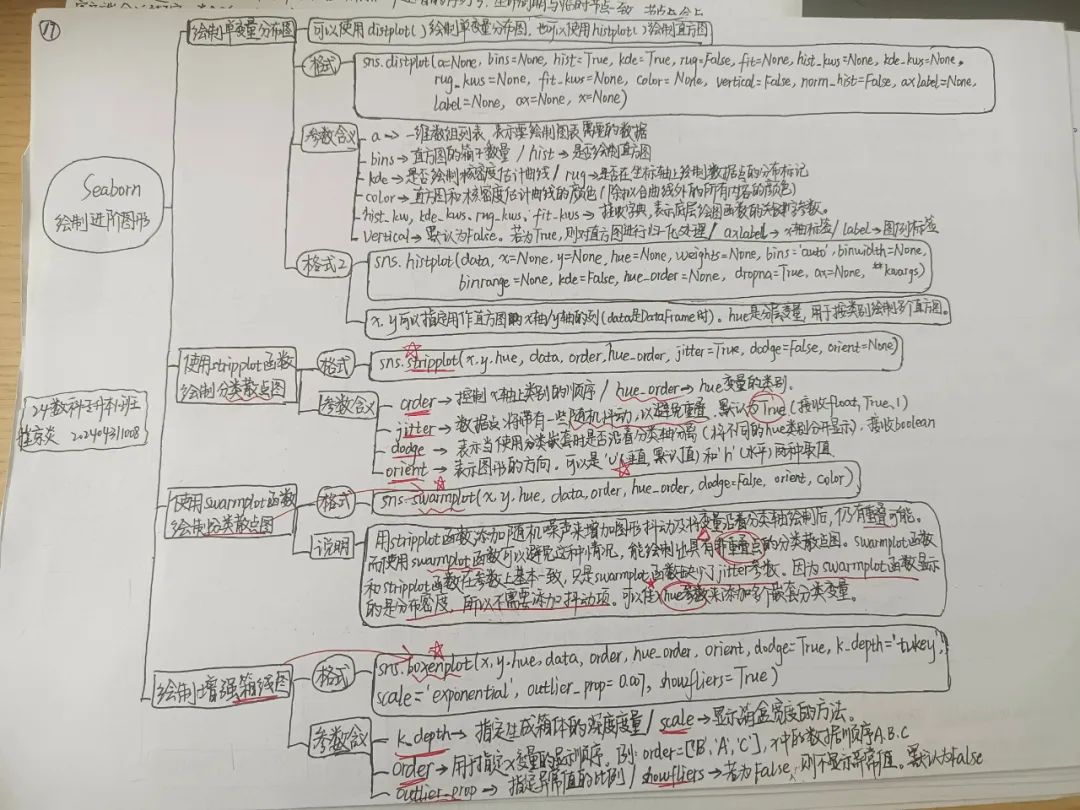 ⑰
绘制单变量分布图
可以使用distplot()绘制单变量分布图,也可以使用histplot()绘制直方图
格式
sns.distplot(a=None, bins=None, hist=True, kde=True, rug=False, fit=None, hist_kws=None, kde_kws=None,
rug_kws=None, fit_kws=None, color=None, vertical=False, norm_hist=False, axlabel=None,
label=None, ax=None, x=None)
参数含义
a→一维数组列表,表示要绘制图表需要的数据
bins→直方图的箱子数量/hist→是否绘制直方图
kde→是否绘制核密度估计曲线/rug→是否在坐标轴上绘制数据点的分布标记
color→直方图和核密度估计曲线的颜色(除拟合曲线外的所有内容的颜色)
hist_kw, kde_kws. rug_kws. fit_kws→接收字典,表示底层绘图函数的关键字参数。
Vertical→默认为False。若为True,则对直方图进行归一化处理/axlabel→x轴标签/label→图例标签
Seaborn
绘制进阶图形
格式2
sns.histplot(data, x=None, y=None, hue=None, weights=None, bins='auto', binwidth=None,
binrange=None, kde=False, hue_order=None, dropna=True, ax=None, **kwargs)
x,y可以指定用作直方图的x轴/y轴的列(data是DataFrame时)。hue是分层变量,用于按类别绘制多个直方图。
使用stripplot函数
绘制分类散点图
格式
sns.stripplot(x,y,hue, data, order, hue_order, jitter=True, dodge=False, orient=None)
参数含义
order→控制x轴上类别的顺序/hue_order→hue变量的类别.
jitter→数据点将带有一些随机抖动,以避免重叠.默认为True(接收float,True,1)
dodge→表示当使用分类嵌套时是否沿着分类轴分离(将不同的hue类别分开显示),接收boolean
orient→表示图形的方向,可以是'v'(垂直,默认值)和'h'(水平)两种取值
24数科专升本1班
202409311008
使用swarmplot函数
绘制分类散点图
格式
sns.swarmplot(x,y,hue, data, order, hue_order, dodge=False, orient, color)
说明
用stripplot函数添加随机噪声来增加图形抖动及将变量沿着分类轴绘制后,仍有重叠可能。
而使用swarmplot函数可以避免这种情况,能绘制出具有非重叠点的分类散点图。swarmplot函数
和stripplot函数在参数上基本一致,只是swarmplot函数缺少了jitter参数。因为swarmplot函数显示
的是分布密度,所以不需要添加抖动项。可以使用hue参数来添加多个嵌套分类变量。
绘制增强箱线图
格式
sns.boxenplot(x,y,hue, data, order, hue_order, orient, dodge=True, k_depth='tukey',
scale='exponential', outlier_prop=0.007, showfliers=True)
参数含义
k_depth→指定生成箱体的深度度量/scale→显示箱盒宽度的方法。
order→用于指定x变量的显示顺序。例:order=['B','A','C'],x中的数据顺序A.B.C
outlier_prop→指定异常值的比例/showfliers→若为False,则不显示异常值。默认为False